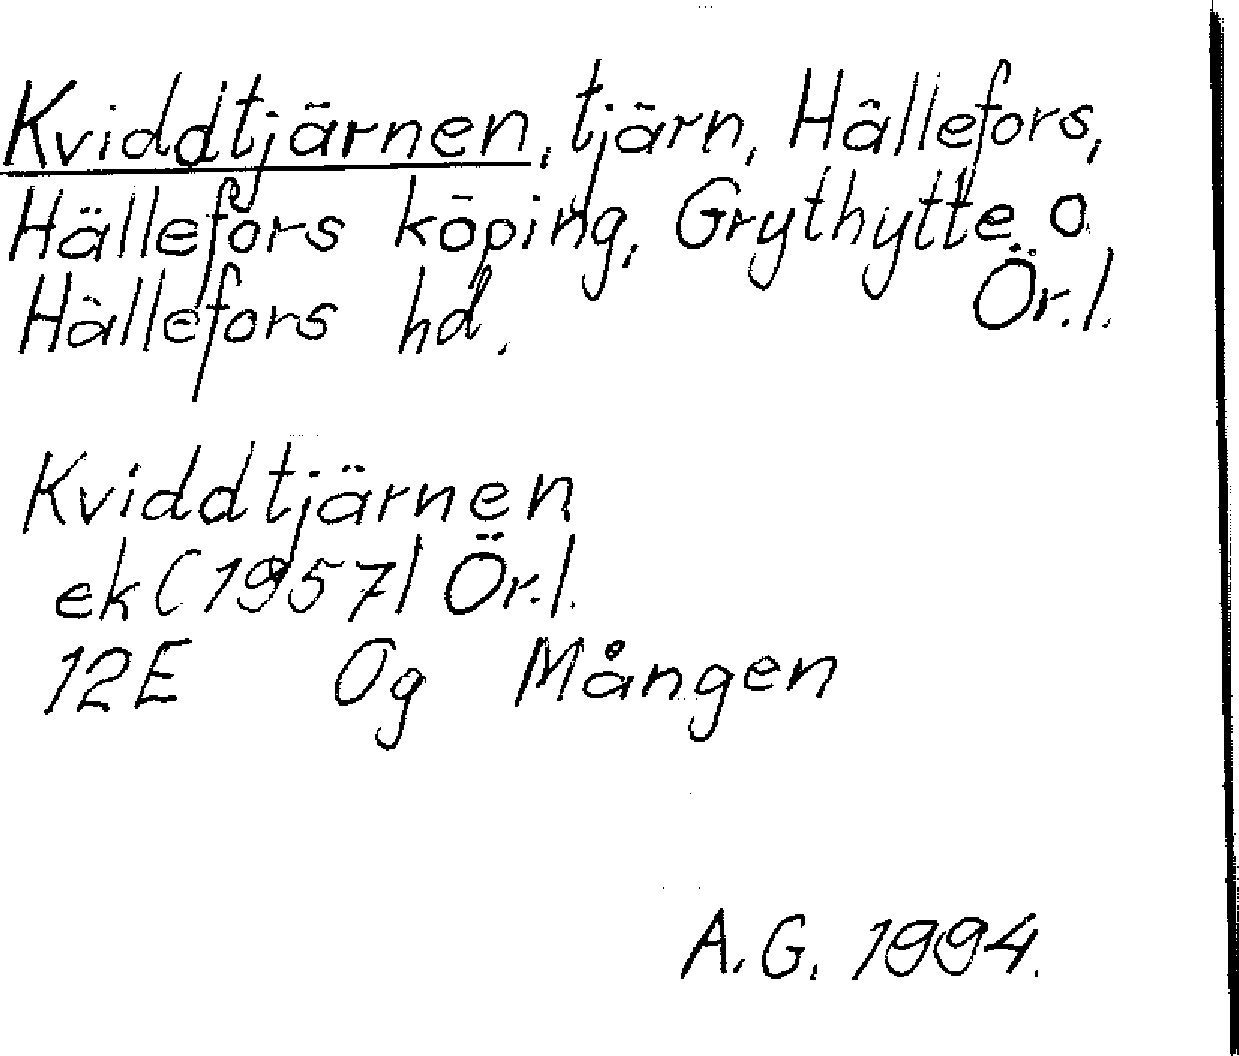 Kviddtjärnen, tjärn, Hällefors,
Hällefors köping, Grythytte o.
Hällefors hd. Ör.l.
Kviddtjärnen
ek (1957) Ör.l.
12E 0g Mången
A.G. 1994.